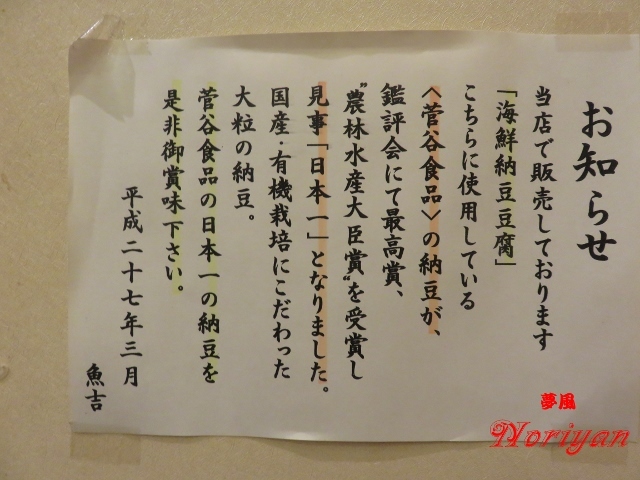 お知らせ
当店で販売しております
「海鮮納豆豆腐」
こちらに使用している
〈菅谷食品〉の納豆が、
鑑評会にて最高賞、
“農林水産大臣賞”を受賞し
見事「日本一」となりました。
国産・有機栽培にこだわった
大粒の納豆。
菅谷食品の日本一の納豆を
是非御賞味下さい。
平成二十七年三月
魚吉
夢風
Noriyan